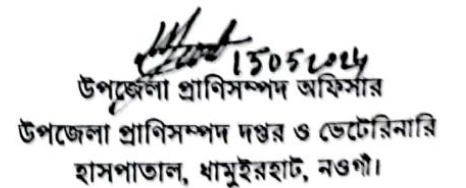 15052024
উপজেলা প্রাণিসম্পদ অফিসার
উপজেলা প্রাণিসম্পদ দপ্তর ও ভেটেরিনারি
হাসপাতাল, ধামুইরহাট, নওগাঁ।